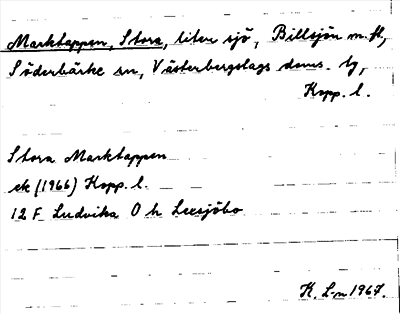 Marktappen, Stora, liten sjö, Billsjön m.fl.,
Söderbärke sn, Västerbergslags doms. tg,
Kopp. l.
Stora Marktappen
ek (1966) Kopp. l.
12 F Ludvika 0 h Leesjöbo
K. L-n 1967.